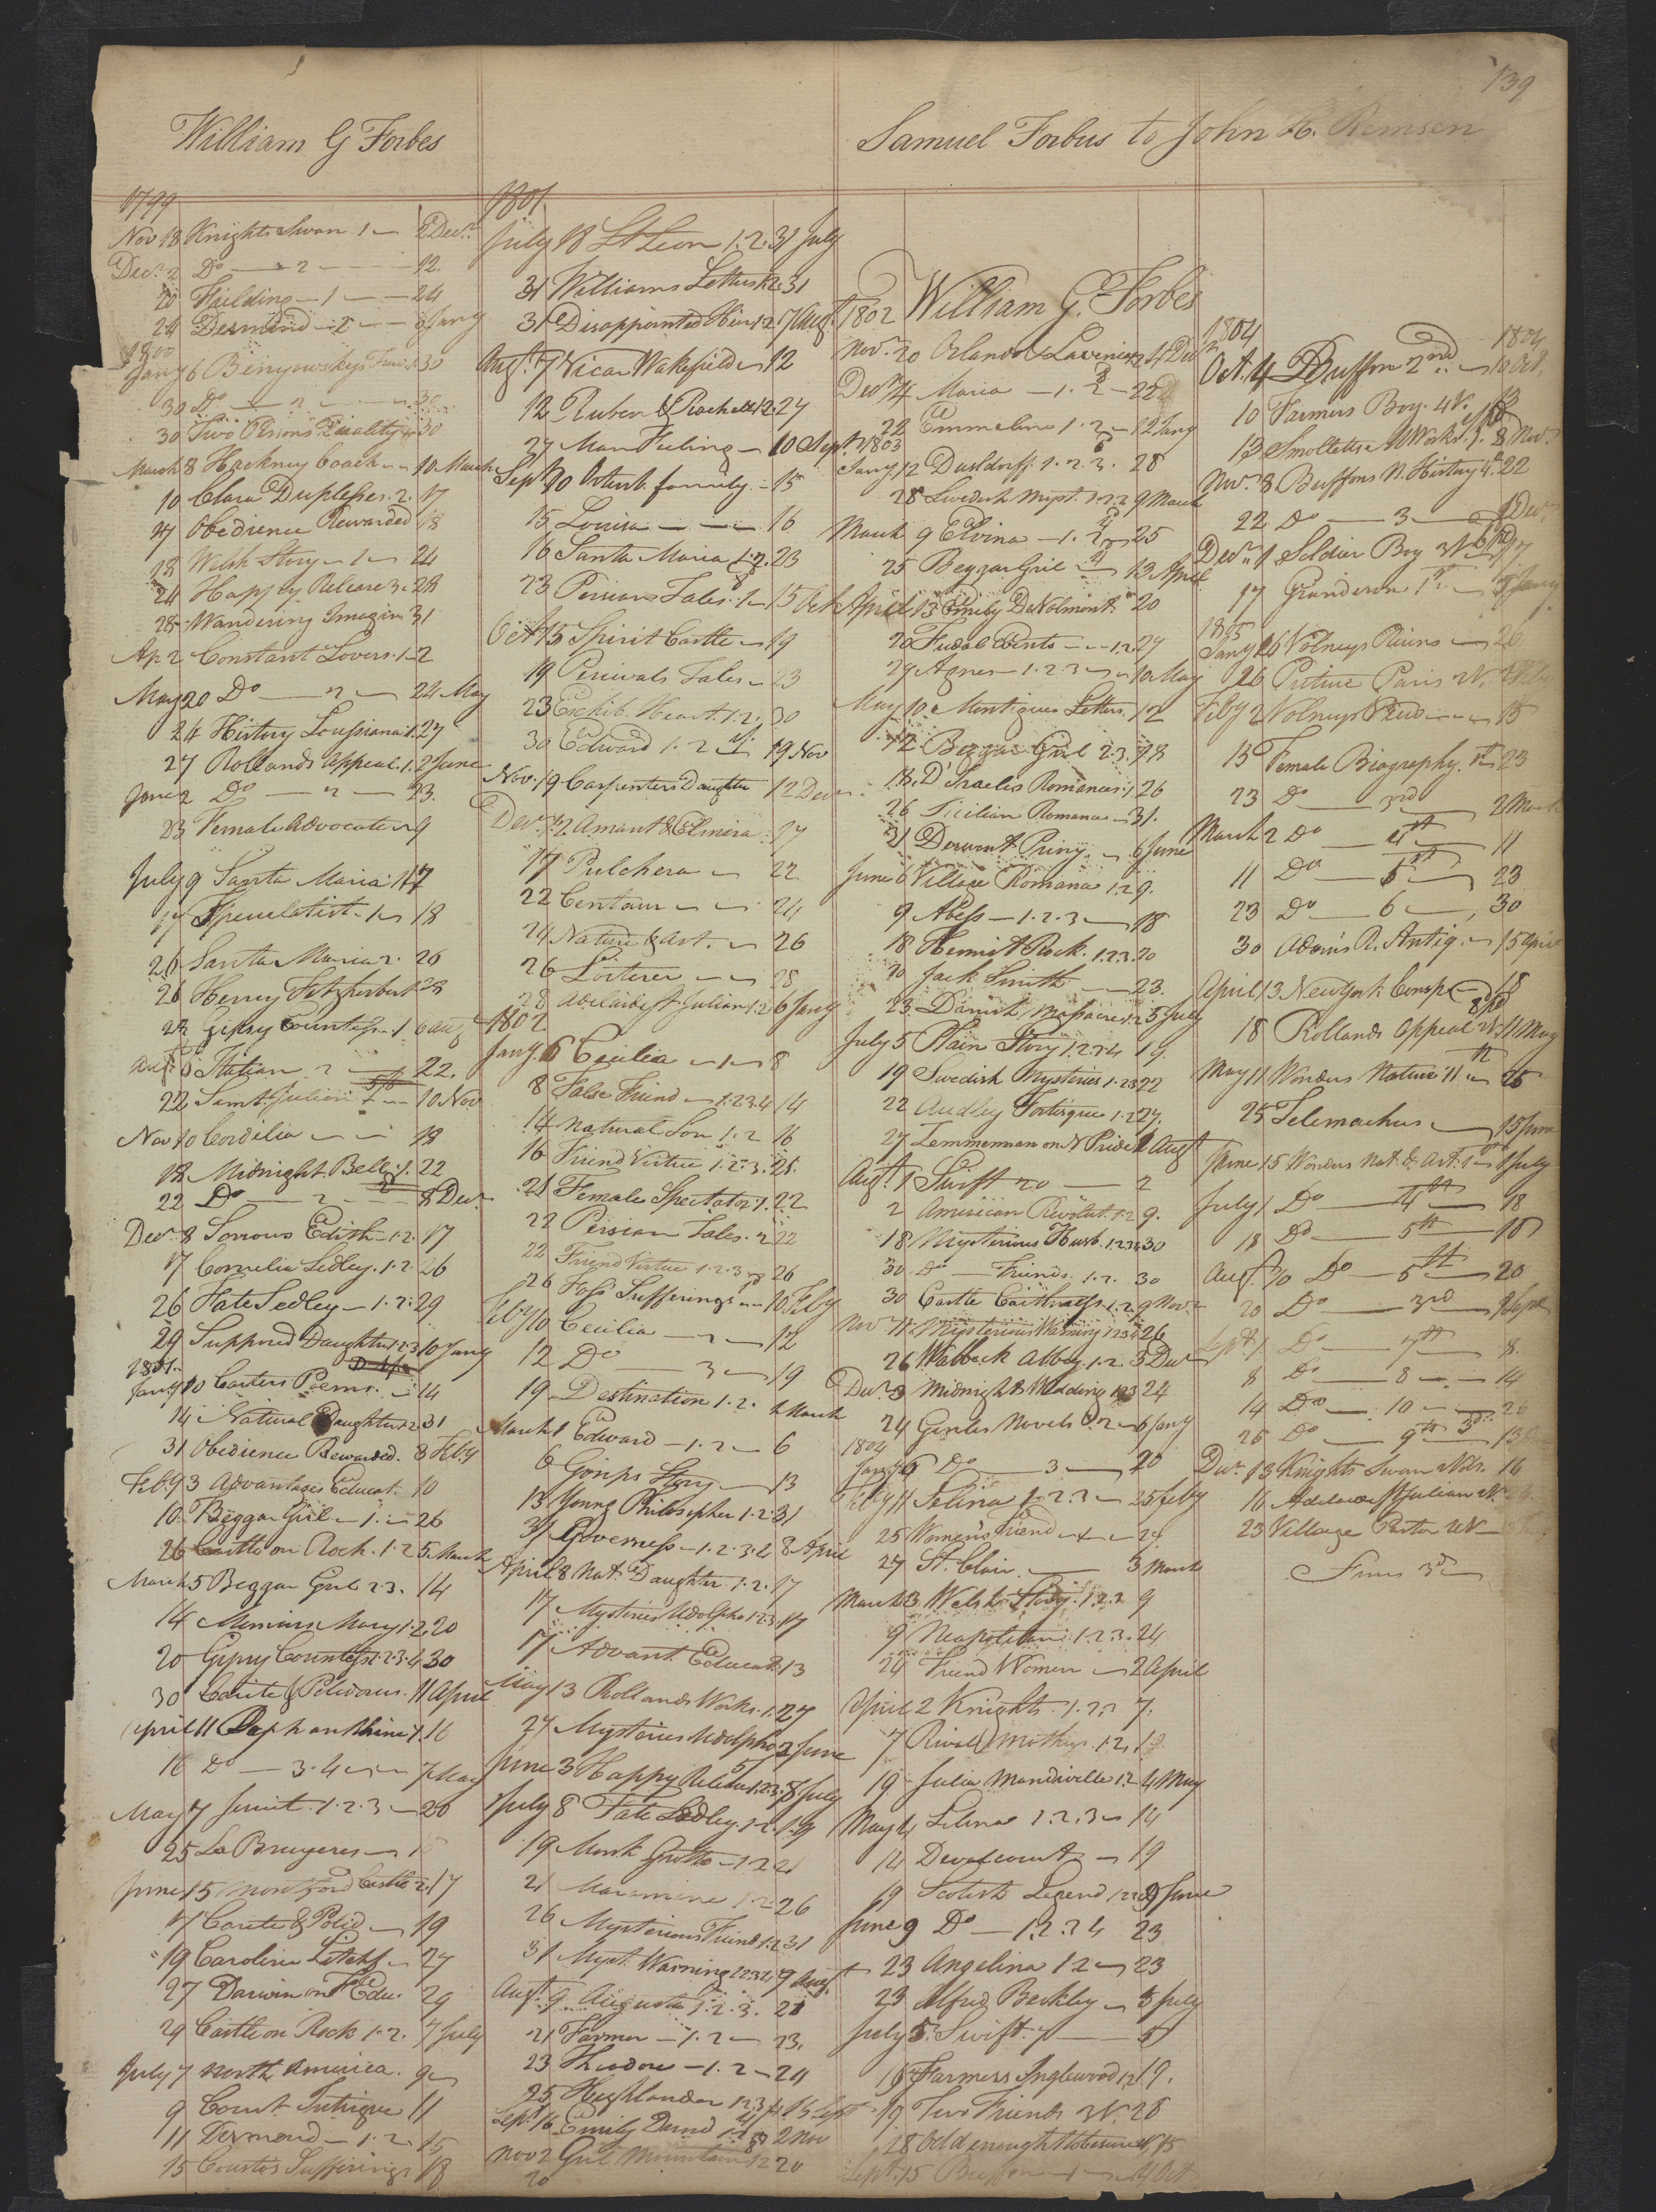 139
William G Forbes
Samuel Forbus to John H. Remsen
1799
Nov 18 Knights Swan 1 — 2 Decr.
Decr. 2 Do — 2 — 12.
Fielding — 1 — 24
24 Desmond — 2 — 6 Jany
1800
Jany 6 Benyowskys Trav. 1 30
30 Do — 2 —
30 Two Persons Quality 30
March 8 Hackney Coach — 10 March
10 Clara Duplessis. 2. 17
17 Obedience Rewarded 18
18 Welsh Story — 1 — 24
24 Happy Release 3. 28
28 Wandering Imagin. 31
Ap 2 Constant Lovers. 1 — 2
May 20 Do — 2 — 24 May
24 History Louisiana 1. 27
27 Rollands Appeal. 1. 2 June
June 2 Do — 2 — 23.
23 Female Advocate — 9
July 9 Santa Maria 1 17
17 Speculatist. 1 — 18
26 Santa Maria 2. 26
26 Henry Fitzherbert 28
28 Gipsy Countess — 1 6 Aug
6 Italian 2 — 22.
22 Saint Julien — 10 Nov
Nov 10 Cordelia — 18
18 Midnight Bell. 1. 22
22 Do — 2 — 8 Decr.
Decr. 8 Sorrows Edith — 1. 2. 17
17 Cornelia Sedley. 1. 2. 26
26 Fate Sedley — 1. 2. 29
29 Supposed Daughter 1. 2. 3 10 Jany
1801.
Jany 10 Carters Poems. — 14
14 Natural Daughter 1. 2 31
31 Obedience Rewarded. 8 Feby
Feby 3 Advantages Educat. 10
10 Beggar Girl — 1. — 26
26 Castle on Rock. 1. 2 5 March
March 5 Beggar Girl 2. 3. 14
14 Memoirs Mary 1. 2. 20
20 Gipsy Countess 1. 2. 3. 4 30
30 Carite & Polidorus. 11 April
April 11 Rasp 1. 16
16 Do — 3. 4 — 7 May
May 7 Jesuit. 1. 2. 3 — 20
25 La Bruyeres —
June 15 Montford Castle 2. 17
17 Carite & Polid — 19
19 Caroline Litchf — 27
27 Darwin on Fele Edu. 29
29 Castle on Rock 1. 2. 7 July
July 7 North America. 9 —
9 Court Intrigue 11
11 Desmond — 1. 2. 15
15 Coustos Sufferings 18
1801.
July 18 St Leon 1. 2. 31 July
31 Williams Letters 1. 2. 31
31 Disappointed Heir 1. 2 7 Augt.
Augt. 7 Vicar Wakefield — 12
12 Ruben & Rachell 1. 2. 27
27 Man Feeling — 10 Sept.
Sept 10 Ortenb. family. — 15
15 Louisa — — 16
16 Santa Maria 1. 2. 23
23 Persian Tales. 1 — 15 Oct
Oct 15 Spirit Castle — 19
19 Percivals Tales — 23
23 Exchib. Heart. 1. 2. 30
30 Edward 1. 2 19 Nov
Nov. 19 Carpenters Daughter 12 Decr.
Decr. 12 Amant & Elmira 17
17 Pulchera — 22
22 Centaur — — 24
24 Nature & Art. — 26
26 Loiterer — — 28
28 Adelaide St Julian 1. 2 6 Jany
1802
Jany. 6 Cecilia — 1 — 8
8 False Friend — 1. 2. 3. 4 14
14 Natural Son 1. 2 16
16 Friend Virtue 1. 2. 3. 21.
21 Female Spectator 1. 22
22 Persian Tales. 2 22
22 Friend Virtue 1. 2. 3 — 26
26 Foss Sufferings — 10 Feby
Feby 10 Cecilia — 2 — 12
12 Do — 3 — 19
19 Destination 1. 2. 1 March
March 1 Edward — 1. 2 — 6
6 Gossips Story — 13
13 Young Philosopher 1. 2. 31
31 Governess — 1. 2. 3. 4 8 April
April 8 Nat. Daughter. 1. 2. 17
17 Mysteries Udolpho 1. 2. 3. 17
17 Advant. Educat. 13
May 13 Rollands Works. 1. 27
27 Mysteries Udolpho 3 June
June 3 Happy Release 1. 2. 3. 8 July
July 8 Fate Sedley. 1. 2. 19
19 Monk Grotto — 1. 2 21
21 1. 2 26
26 Mysterious Friend 1. 2 31
31 Myst. Warning 1. 2. 3. 4 9 Augt.
Augt. 9 Augusta 1. 2. 3. 21
21 Farmer — 1. 2 — 23.
23 Theodore — 1. 2 — 24
25 Highlander 1. 2. 3. 4 16 Sept
Sept. 16 Emily Dand 2 Nov
Nov 2 Girl Mountain 1. 2 20
20
William G. Forbes
1802
Nov. 20 Orlando & Lavinia 1. 2 4 Decr.
Decr. 4 Maria — 1. 2 — 22
22 Emmeline 1. 2 — 12 Jany
1803
Jany 12 Dusldorf. 1. 2. 3. 28
28 Swedish Myst. 1. 2. 3 9 March
March 9 Elvina — 1. 2 — 25
25 Beggar Girl — 13 April
April 13 Emily De Valmont. 20
20 Fudal Events — 1. 2 27
27 Agnes — 1. 2. 3 — 10 May
May 10 Montigues Letters. 12
12 Beggar Girl 2. 3. 18
18. D'Israelis Romances 1. 26
26 Sicilian Romance — 31.
31 Derwent Priory — 6 June
June 6 Village Romance 1. 2 9.
9 Abess — 1. 2. 3 — 18
18 Hermit Rock. 1. 2. 3. 20
20 Jack Smith — 23.
23 Danish Massacre 1. 2 5 July
July 5 Plain Story 1. 2. 3. 4 19.
19 Swedish Mysteries 1. 2. 3 22
22 Audley Fortisque 1. 2 27.
27 Zemmerman on N Pride 1 Augt
Augt. 1 Swift 20 — 2
2 American Revolut. 1. 2 9.
18 Mysterious Husb. 1. 2. 3. 4 30
30 Do — Friends. 1. 2. 30
30 Castle Caithness 1. 2 9 Novr.
Nov 11 Mysterious Warning 1. 2. 3. 4 26
26 Walbeck Abbey. 1. 2. 3 Decr
Decr. 3 Midnight Wedding 1. 2. 3 24
24 Genlis Novels 1. 2 — 6 Jany
1804
Jany 6 Do — 3 — 20
Feby 11 Selina 1. 2. 3 — 25 Feby
25 Women's Friend — 27
27 St. Clair. — 3 March
March 3 Welsh Story. 1. 2. 3 9
9 Neapolitan 1. 2. 3. 24
24 Friend Women — 2 April
April 2 Knights. 1. 2. 3 7.
7 Rival Mothers. 1. 2.
19 Julia Mandiville 1. 2 4 May
May 4 Selina 1. 2. 3 — 14
14 Devalcourt — 19
19 Scotish Legend 1. 2. 3. 9 June
June 9 Do — 1. 2. 3. 4 23
23 Angelina 1. 2 — 23
23 Alfrid Berkley — 5 July
July 5. Swift. 7 — 5
16 Farmers Inglewood 1. 2 19.
19 Two Friends 3 V. 28
28 Old enough to be
Sept. 15 Buffon — 1 — 4 Oct
1804
1804
Oct. 4 Buffon 2nd — 10 Oct.
10 Farmers Boy. 4 V. 13
13 Smolletts Works. 1. 8 Novr.
Novr. 8 Buffons N. History 4. 22
22 Do — 3 — 1 Decr.
Decr. 1 Soldier Boy 17
17 Grandison 1st. — 8 Jany
1805
Jany 26 Volneys Ruins — 26
26 Picture Paris
Feby 2 Volneys Ruins — 13
13 Female Biography. — 23
23 Do — 3rd 2 March
March 2 Do — 4th 11
11 Do — 5th 23
23 Do — 6 — 30
30 Adam's R. Antiq. — 13 April
April 13 New York Consp. — 18
18 Rollands Appeal 11 May
May 11 Wonders Nature 11 — 25
25 Telemachus — 15 June
June 15 Wonders Nat. & Art. 1 — 1 July
July 1 Do — 4th — 18
18 Do — 5th — 10
Augt. 10 Do — 6th — 20
20 Do — 3rd — 1 Sept
Sept. 1 Do — 7th — 8.
8 Do — 8 — 14
14 Do — 10 — 26
26 Do — 9th
Decr. 13 Knights Swan 16
16 Adelaide St Julian
23 Village Pastor
Fines